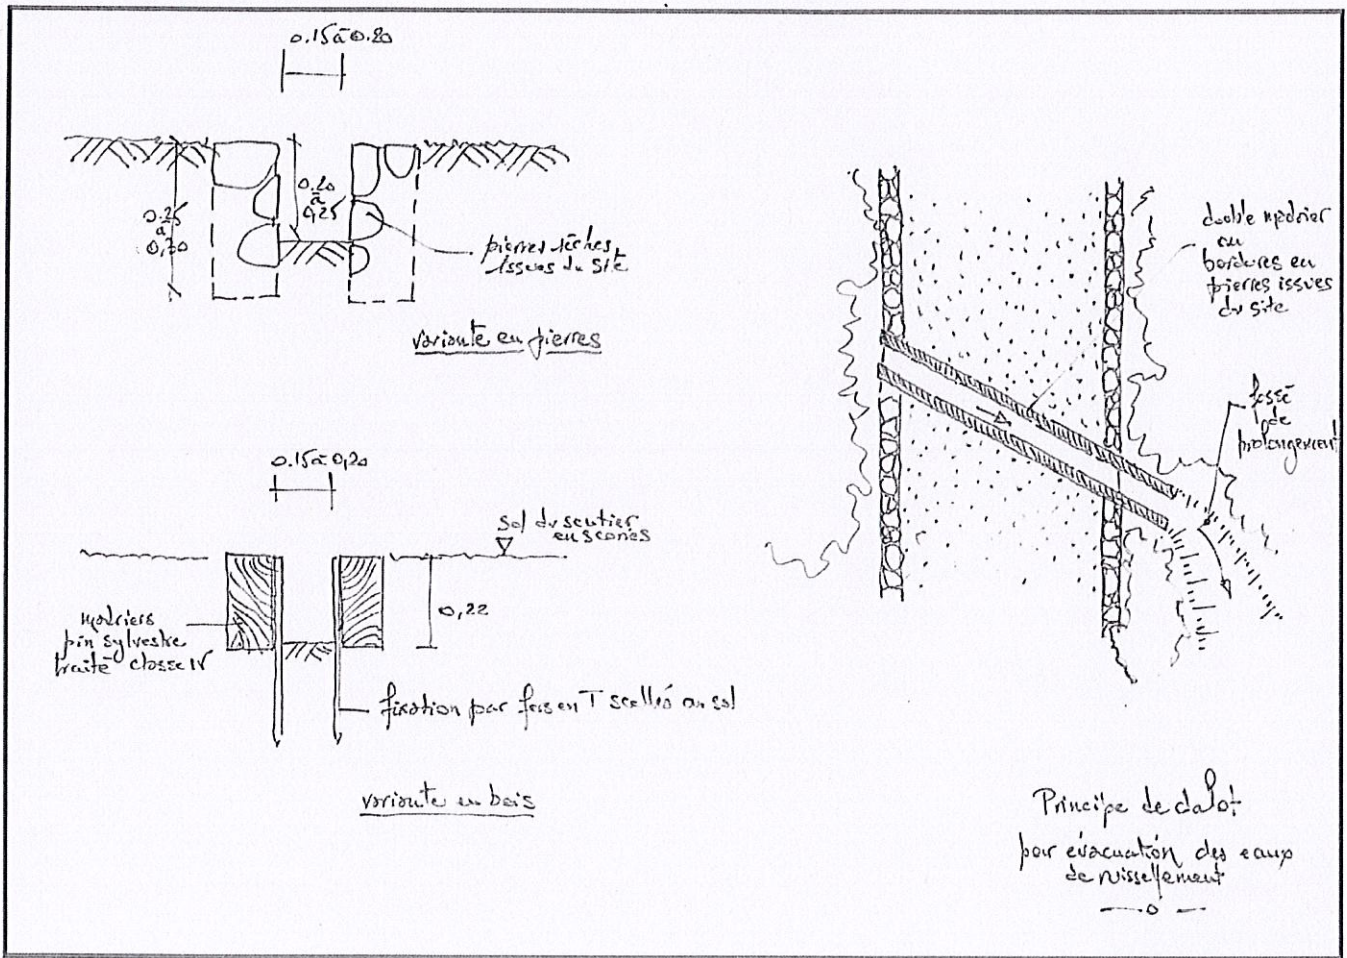 0.15 à 0.20
0.25
à
0,30
0.20
à
0,25
pierres sèches
issues du site
variante en pierres
0.15 à 0,20
sol du sentier
en scories
0,22
madriers
pin sylvestre
traité classe IV
fixation par fers en T scellés au sol
variante en bois
double madrier
ou
bordures en
pierres issues
du site
fossé
de
prolongement
Principe de dalot
pour évacuation des eaux
de ruissellement